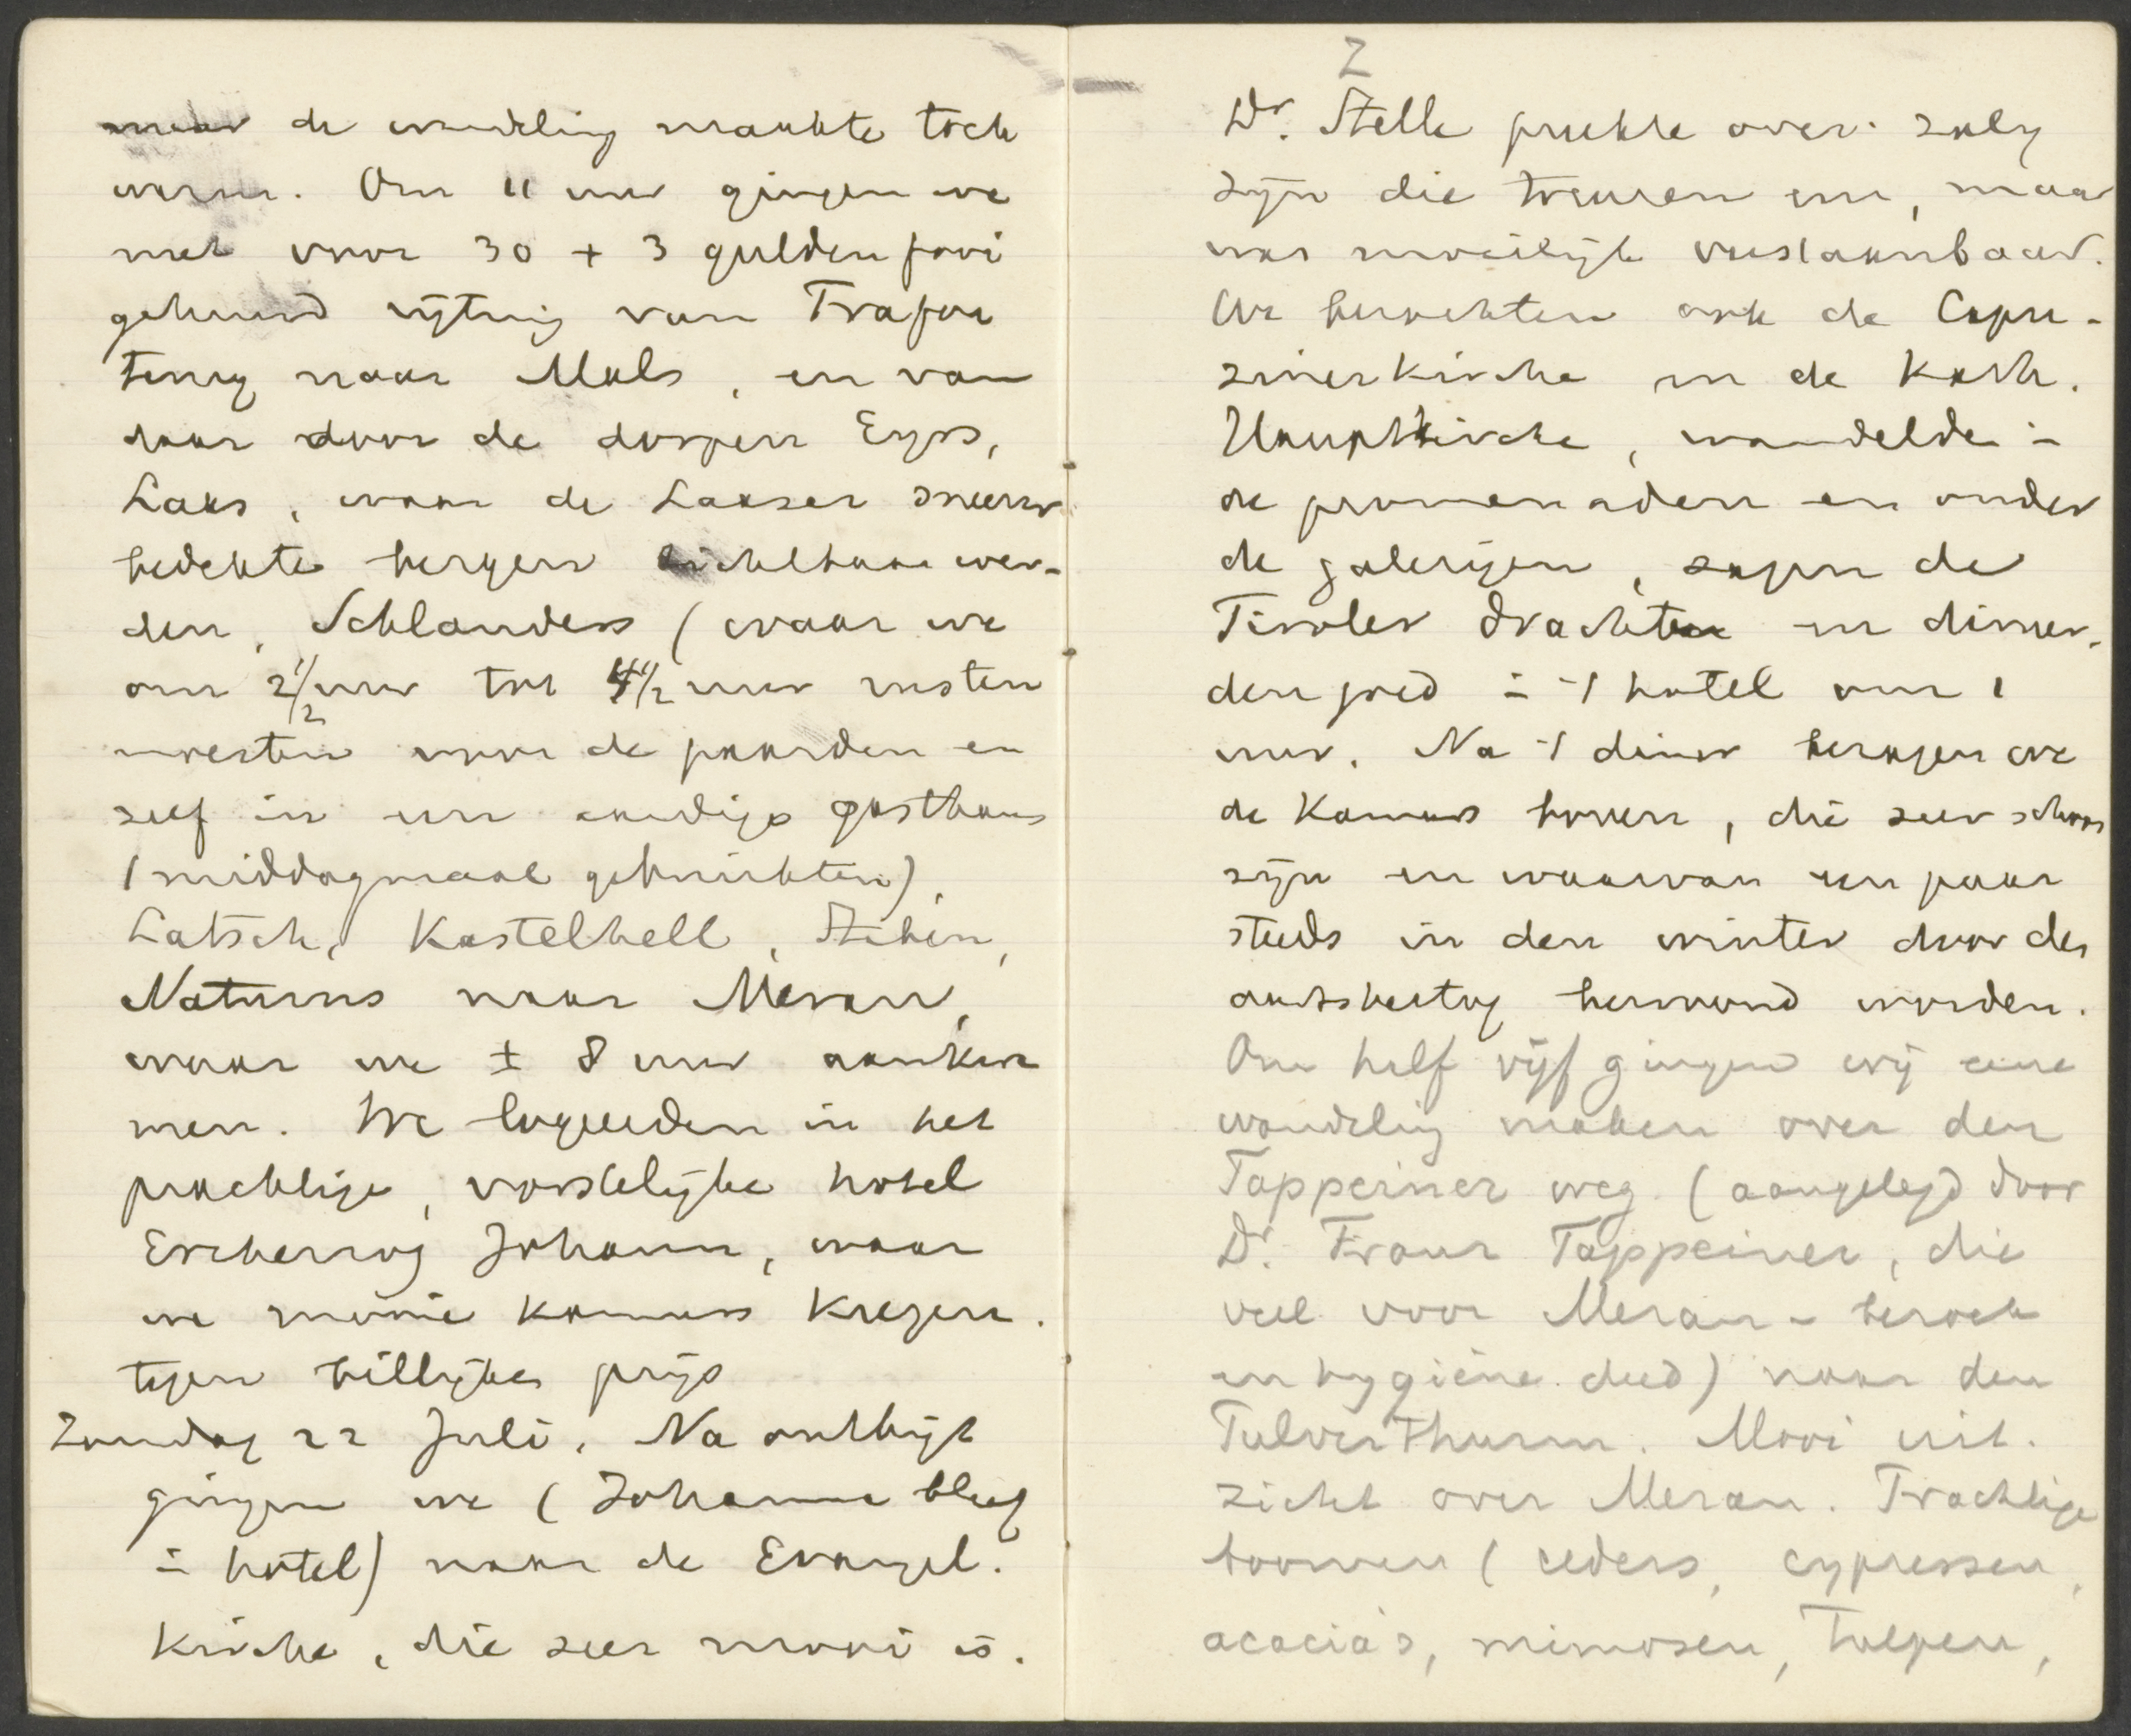 maar de wandeling maakte toch
warm. Om 11 uur gingen we
met voor 30 + 3 gulden fooi
gehuurd rijtuig van Trafoi
terug naar Mals, en van
daar door de dorpen Eyrs,
Laas, waar de Laaser sneeuw
bedekte bergen zichtbaar wer-
den, Schlanders (waar we
om 2 1/2 uur tot 4 1/2 uur rusten
moesten voor de paarden en
zelf in een aardige gasthaus
't middagmaal gebruikten),
Latsch, Kastelbell, Staben,
Naturns naar Meran,
waar we ± 8 uur aankwa
men. We logeerden in het
prachtige, vorstelijke hotel
Erzherzog Johann, waar
we mooie kamers kregen
tegen billijke prijs
Zondag 22 Juli. Na ontbijt
gingen we (Johanna bleef
in hotel) naar de Evangel.
Kirche, die zeer mooi is.
Z
Dr. Stelle preekte over: zalig
zijn die treuren enz, maar
was moeilijk verstaanbaar.
We bezochten ook de Capu-
zinerkirche en de Kath.
Hauptkirche, wandelden in
de promenaden en onder
de galerijen, zagen de
Tiroler drachten en dineer-
den goed in 't hotel om 1
uur. Na 't diner bezagen we
de Kamers boven, die zeer schoon
zijn en waarvan een paar
steeds in den winter door den
aartshertog bewoond worden.
Om half vijf gingen wij eene
wandeling maken over den
Tappeiner weg (aangelegd door
Dr. Franz Tappeiner, die
veel voor Meran - bezoek
en hygiëne deed) naar den
Pulverthurm. Mooi uit-
zicht over Meran. Prachtige
boomen (ceders, cypressen,
acacia's, mimosen, tulpen,